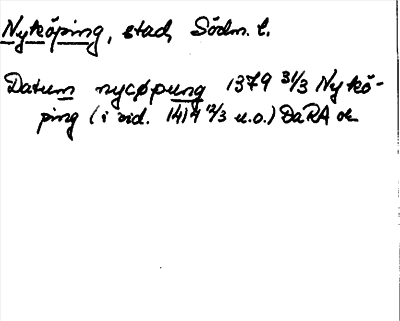 Nyköping, stad, Södm. l.
Datum nycøpung 1379 31/3 Nykö-
ping (i vid. 1414 12/3 u.o.) DaRA or